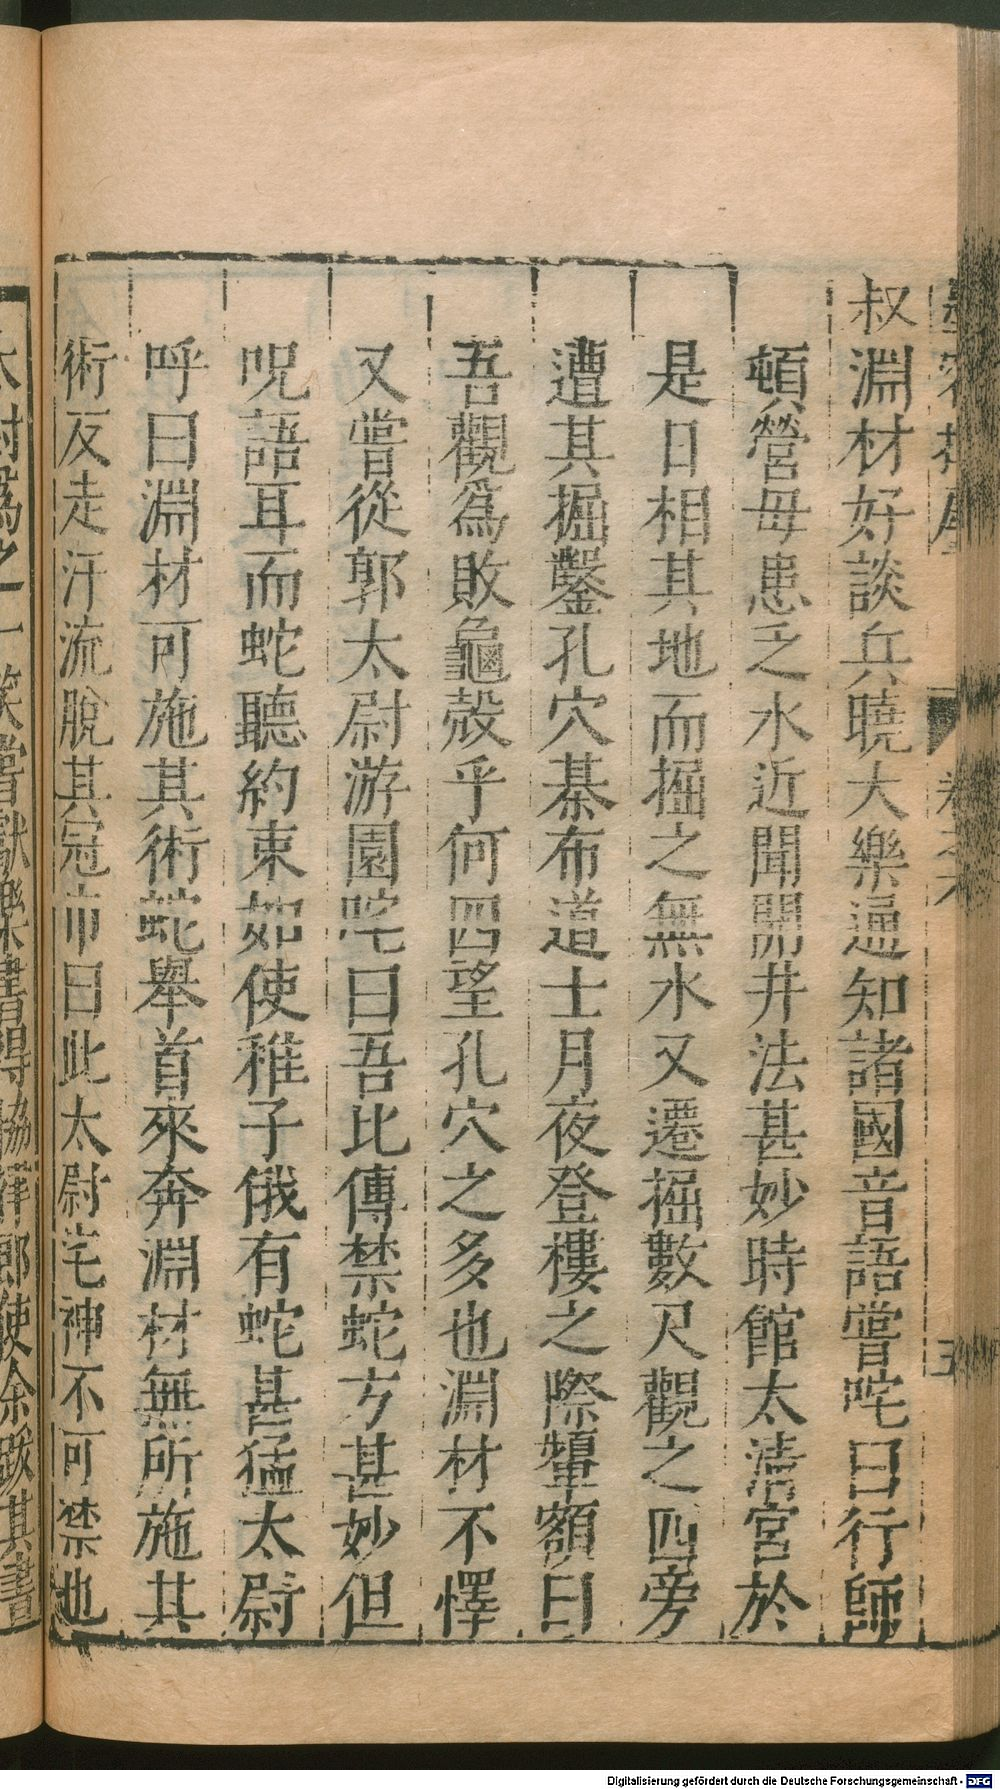 叔淵材好談兵曉大樂通知諸國音語嘗咤曰行師
頓營每患乏水近聞開井法甚妙時館太清宮於
是日相其地而掘之無水又遷掘數尺觀之四旁
遭其掘鑿孔穴棊布道士月夜登樓之際顰額曰
吾觀爲敗龜殼乎何四望孔穴之多也淵材不懌
又嘗從郭太尉游園咤曰吾比傳禁蛇方甚妙但
呪語耳而蛇聽約束如使稚子俄有蛇甚猛太尉
呼曰淵材可施其術蛇舉首來奔淵材無所施其
術反走汗流脫其冠巾曰此太尉宅神不可禁也
太尉爲之一笑嘗獻樂書得協律郎使余跋其書
卷之六
五
Digitalisierung gefördert durch die Deutsche Forschungsgemeinschaft - DFG